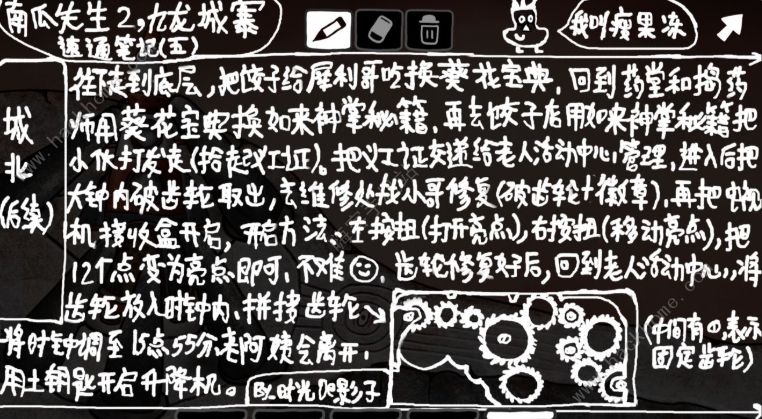 南瓜先生2,九龙城寨
速通笔记(五)
我叫瘦果冻
城北(后续)
往下走到底层,把饺子给犀利哥吃换葵花宝典,回到药堂和捣药
师用葵花宝典换如来神掌秘籍,再去饺子店用如来神掌秘籍把
小伙打发走(拾起义工证)。把义工证交递给老人活动中心管理,进入后把
大钟内破齿轮取出,去维修处找小哥修复(破齿轮+徽章),再把电视
机接收盒开启,开启方法,左按扭(打开亮点),右按扭(移动亮点),把
12个点变为亮点即可,不难☺,齿轮修复好后,回到老人活动中心,将
齿轮放入时钟内,拼接齿轮
将时钟调至15点55分老阿姨会离开,
用土钥匙开启升降机。
(中间有0表示
固定齿轮)